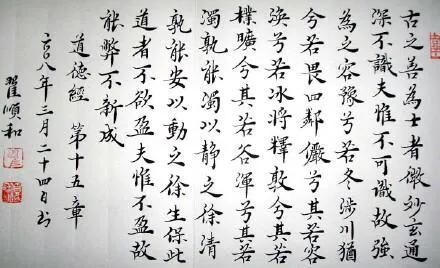 古之善為士者微玅玄通
深不識夫惟不可識故強
為之容豫兮若冬涉川猶
兮若畏四鄰儼兮其若容
渙兮若冰將釋敦兮其若
樸曠兮其若谷渾兮其若
濁孰能濁以靜之徐清
孰能安以動之徐生保此
道者不欲盈夫惟不盈故
能弊不新成
道德經 第十五章
二〇〇八年三月二十四日书
翟順和